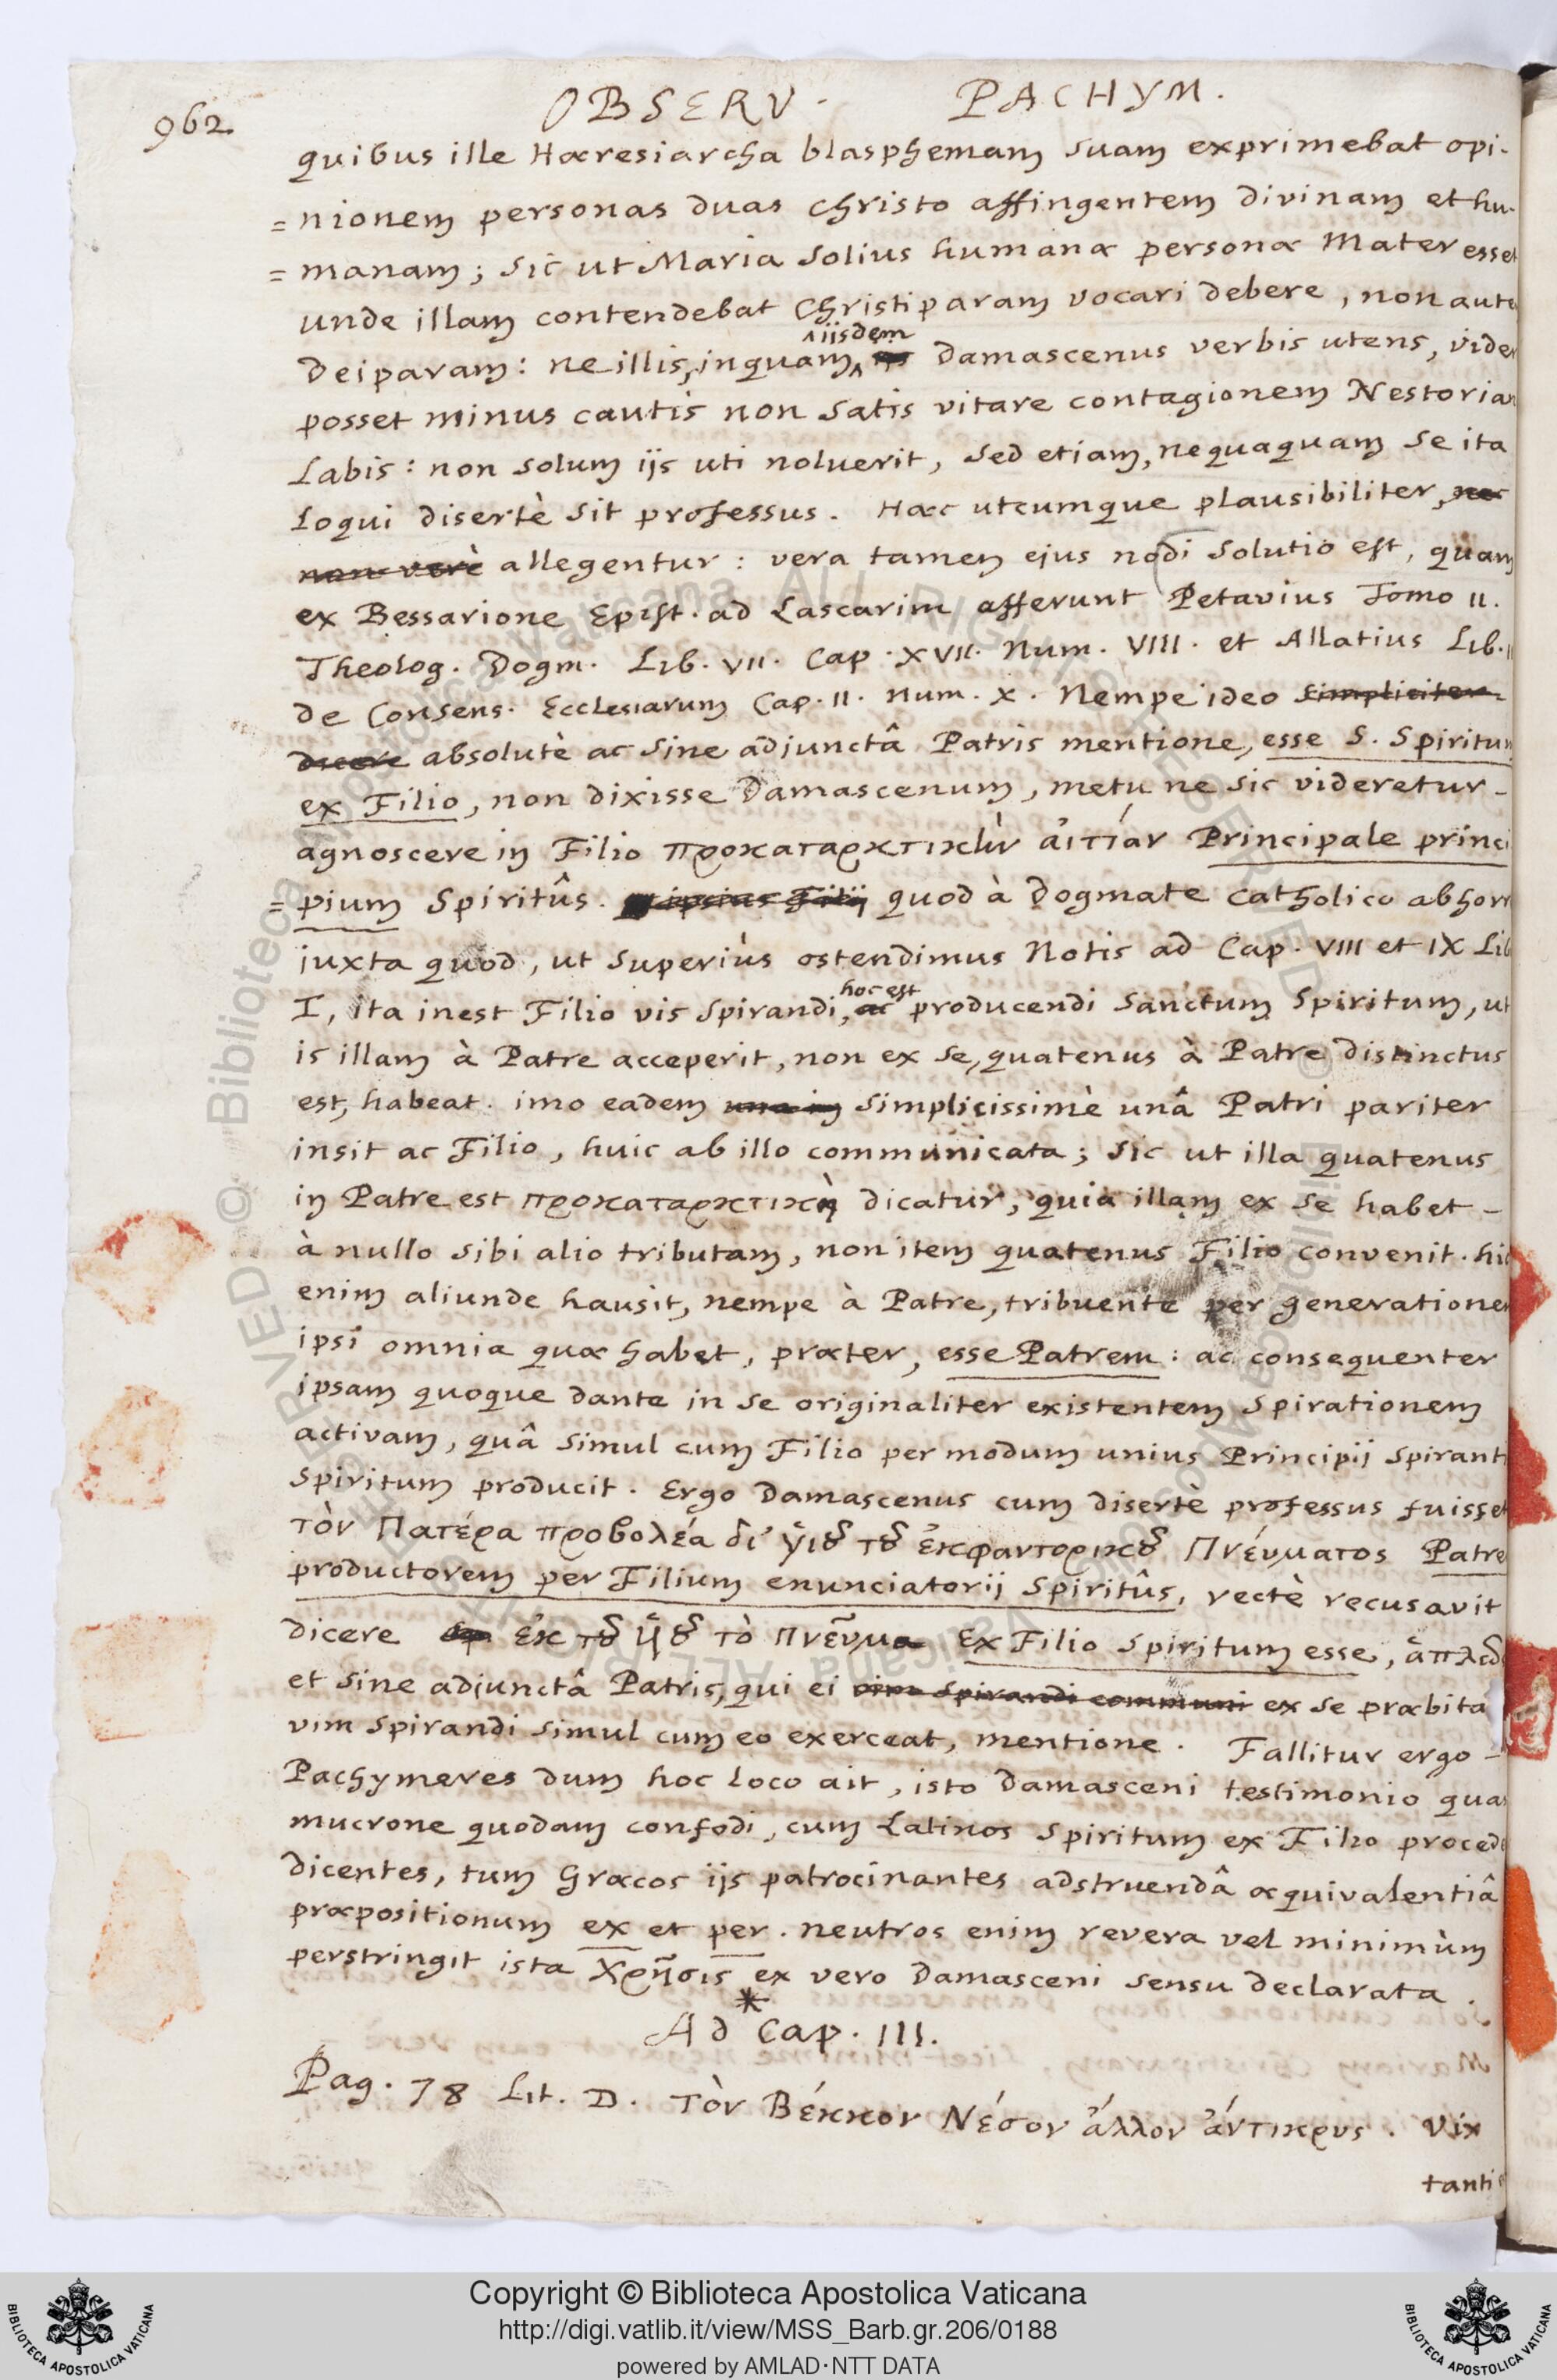 962
OBSERV. PACHYM.
quibus ille Hæresiarcha blasphemam suam exprimebat opi-
=nionem personas duas Christo affingentem divinam et hu-
=manam; sic ut Maria solius humanæ personæ Mater esset
unde illam contendebat Christiparam vocari debere, non aute
iisdem
Deiparam: ne illis, inquam, Damascenus verbis utens, vider
posset minus cautis non satis vitare contagionem Nestorian
Labis: non solum ijs uti noluerit, sed etiam, nequaquam se ita
Loqui disertè sit professus. Hæc utcumque plausibiliter, nec
non verè allegentur: vera tamen ejus nodi solutio est, quam
ex Bessarione Epist. ad Lascarim afferunt Petavius Tomo II.
Theolog. Dogm. Lib. VII. Cap. XVII. Num. VIII. et Allatius Lib. II
de Consens. Ecclesiarum Cap. II. num. X. Nempe ideo simpliciter
dicere absolutè ac sine adjunctâ Patris mentione, esse S. Spiritum
ex Filio, non dixisse Damascenum, metu ne sic videretur -
agnoscere in Filio προκαταρκτικὴν αἰτίαν Principale princi
=pium Spiritûs. ipsius Filij quod à dogmate Catholico abhorr
juxta quod, ut superiùs ostendimus Notis ad Cap. VIII et IX Lib
hoc est
I, ita inest Filio vis spirandi, ac producendi Sanctum Spiritum, ut
is illam à Patre acceperit, non ex se, quatenus à Patre distinctus
est, habeat. imo eadem una in simplicissimè unâ Patri pariter
insit ac Filio, huic ab illo communicata; sic ut illa quatenus
in Patre est προκαταρκτικὴ dicatur, quia illam ex se habet -
à nullo sibi alio tributam, non item quatenus Filio convenit. hic
enim aliunde hausit, nempe à Patre, tribuente per generationem
ipsi omnia quæ habet, præter, esse Patrem: ac consequenter
ipsam quoque dante in se originaliter existentem Spirationem
activam, quâ simul cum Filio per modum unius Principij Spirant
Spiritum producit. Ergo Damascenus cum disertè professus fuisset
τὸν Πατέρα προβολέα δι' ὑιȣ τȣ ἐκφαντορικȣ Πνέυματος Patre
productorem per Filium enunciatorij Spiritûs, rectè recusavit
dicere ἐκ τȣ ὑιȣ τὸ πνεῦμα Ex Filio Spiritum esse, ἁπλῶς
et sine adjunctâ Patris, qui ei vim spirandi communi ex se præbita
vim spirandi simul cum eo exerceat, mentione. Fallitur ergo -
Pachymeres dum hoc loco ait, isto Damasceni testimonio quas
mucrone quodam confodi, cum Latinos Spiritum ex Filio procede
dicentes, tum Græcos ijs patrocinantes adstruendâ æquivalentiâ
præpositionum ex et per. neutros enim revera vel minimùm
perstringit ista χρῆσις ex vero Damasceni sensu declarata.
*
Ad Cap. III.
Pag. 78 Lit. D. τὸν Βέκκον Νέσον ἄλλον ἄντικρυς. Vix
tanti
Copyright © Biblioteca Apostolica Vaticana
http://digi.vatlib.it/view/MSS_Barb.gr.206/0188
powered by AMLAD·NTT DATA
BIBLIOTECA APOSTOLICA VATICANA
BIBLIOTECA APOSTOLICA VATICANA